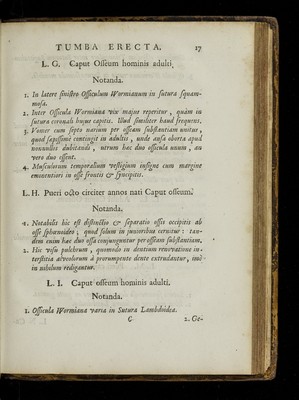 TUMBA ERECTA. 17
L. G. Caput Osseum hominis adulti.
Notanda.
1. In latere sinistro Officulum Wormianum in sutura squam-
mosa.
2. Inter Officula Wormiana vix majus reperitur, quàm in
sutura coronali hujus capitis. Illud similiter haud frequens.
3. Vomer cum septo narium per osseam substantiam unitur,
quod sæpissimè contingit in adultis, unde ansa oborta apud
nonnullos dubitandi, utrum hæc duo officula unum, an
vero duo essent.
4. Musculorum temporalium vestigium insigne cum margine
eminentiori in osse frontis & syncipitis.
L. H. Pueri octo circiter annos nati Caput osseum.
Notanda.
1. Notabilis hic est distinctio & separatio ossis occipitis ab
osse sphænoide; quod solum in junioribus cernitur: tan-
dem enim hæc duo ossa conjunguntur per osseam substantiam.
2. Hic visu pulchrum, quomodo in dentium renovatione in-
terstitia alveolorum à prorumpente dente extrudantur, imò
in nihilum redigantur.
L. I. Caput osseum hominis adulti.
Notanda.
1. Officula Wormiana varia in Sutura Lambdoidea.
C 2. Ge-